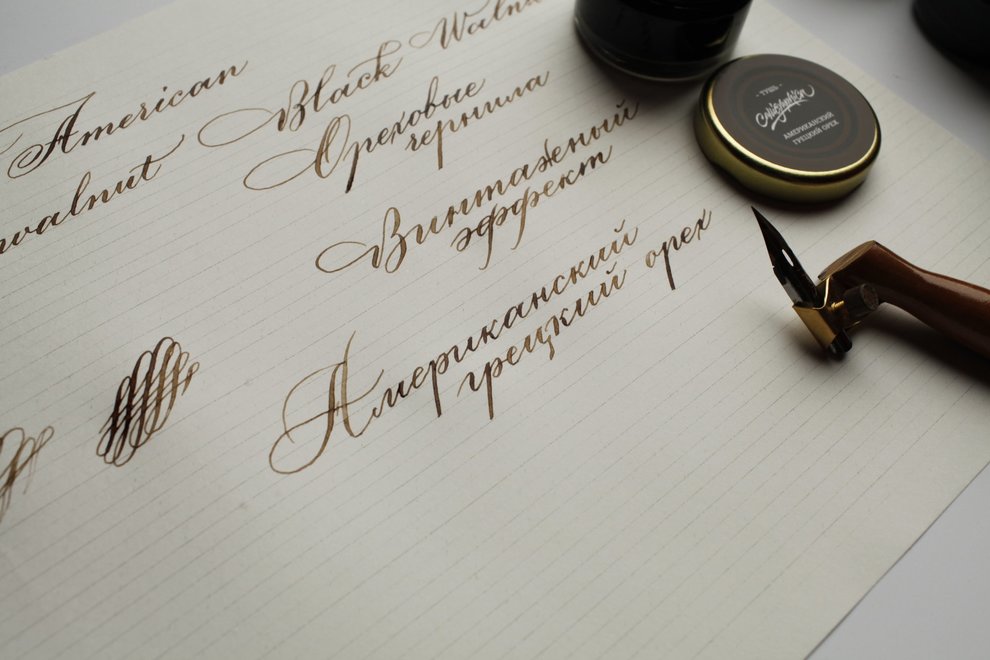 American
Black
walnut
Ореховые
чернила
Винтаженый
эффект
Американский
грецкий орех
ТУШЬ
АМЕРИКАНСКИЙ
ГРЕЦКИЙ ОРЕХ